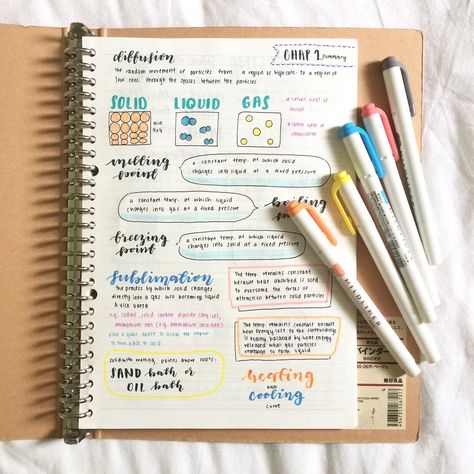 diffusion
CHAP 1 summary
the random movement of particles from a region of high conc. to a region of
low conc. through the spaces between the particles
SOLID LIQUID GAS
latent heat of
fusion
latent heat of
vaporization
melting
point
a constant temp. at which solid
changes into liquid at a fixed pressure
boiling
point
a constant temp. at which liquid
changes into gas at a fixed pressure
freezing
point
a constant temp. at which liquid
changes into solid at a fixed pressure
sublimation
the process by which solid changes
directly into a gas w/o becoming liquid
& vice versa
e.g. iodine, solid carbon dioxide (dry ice),
The temp. remains constant
because heat absorbed is used
to overcome the forces of
attraction between solid particles
The temp. remains constant because
heat energy lost to the surroundings
is exactly balanced by heat energy
released when particles
rearrange to form liquid
solid with melting points above 100°C:
SAND bath or
OIL bath
heating
and
cooling
curve
MILDLINER
バインダー
BINDER